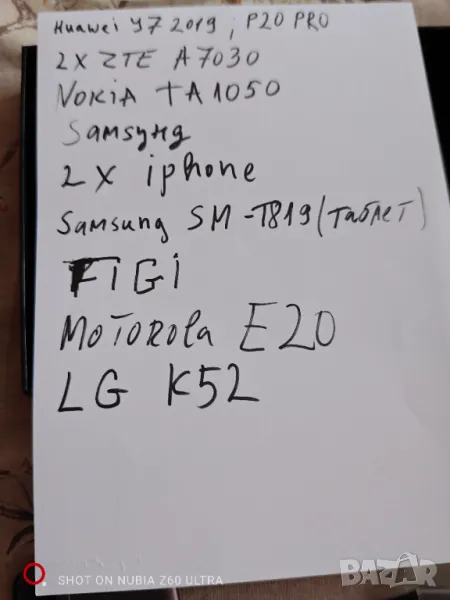 Huawei Y7 2019, P20 PRO
2X ZTE A7030
NOKIA TA1050
Samsyng
2X iphone
Samsung SM-T819 (таблет)
FiGi
MOTOROLA E20
LG K52
SHOT ON NUBIA Z60 ULTRA
bazar